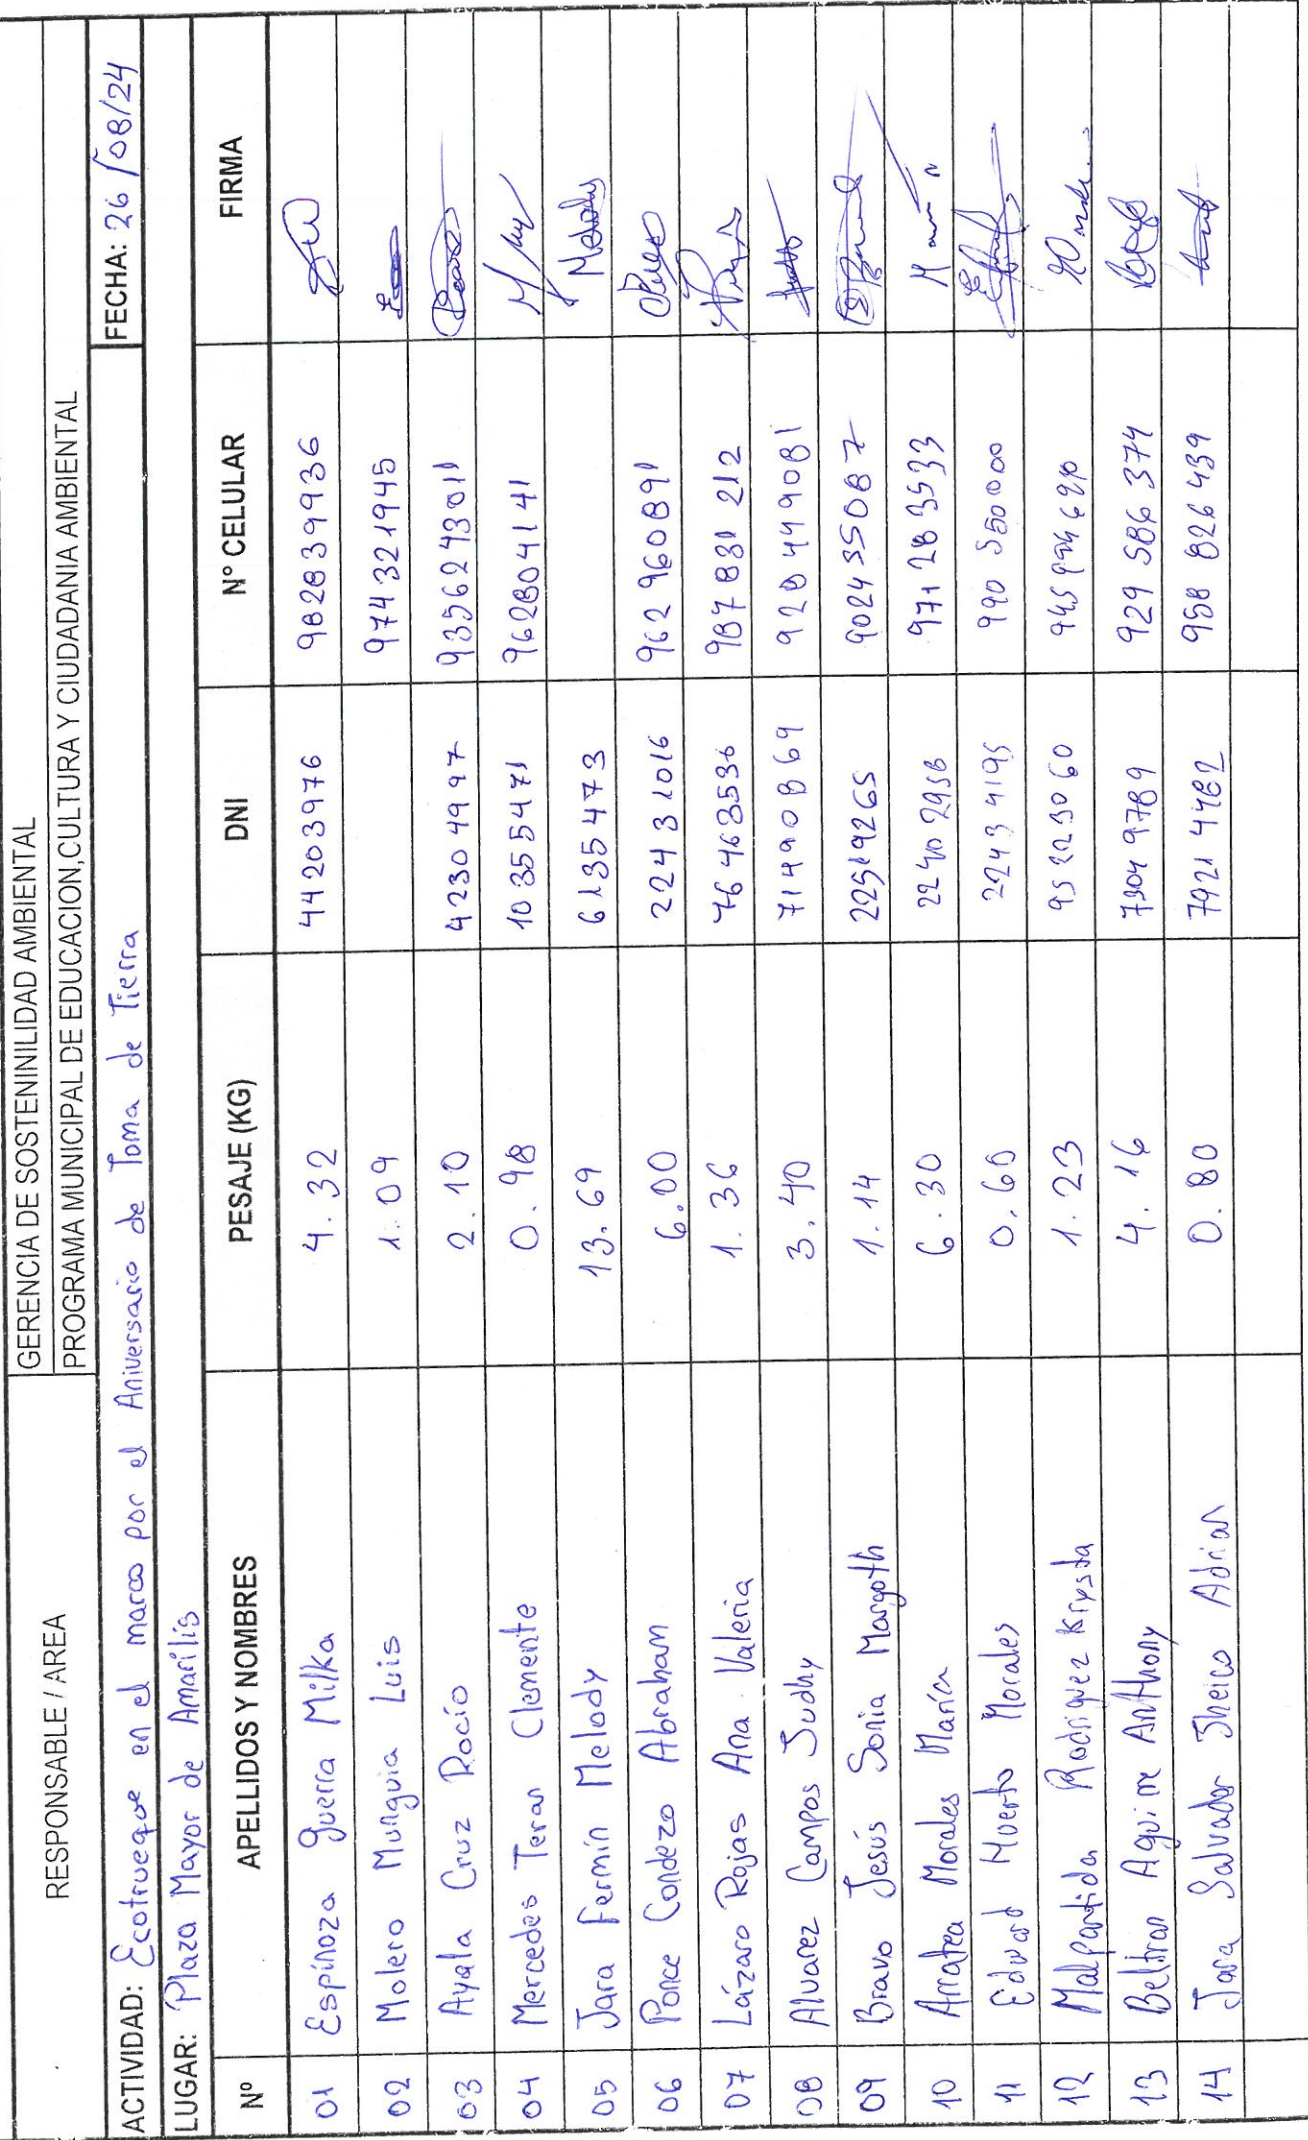 RESPONSABLE / AREA
GERENCIA DE SOSTENINILIDAD AMBIENTAL
PROGRAMA MUNICIPAL DE EDUCACION,CULTURA Y CIUDADANIA AMBIENTAL
ACTIVIDAD: Ecotrueque en el marco por el Aniversario de Toma de Tierra FECHA: 26/08/24
LUGAR: Plaza Mayor de Amarilis
Nº APELLIDOS Y NOMBRES PESAJE (KG) DNI N° CELULAR FIRMA
01 Espinoza Guerra Milka 4.32 44203976 982839936
02 Molero Munguia Luis 1.09 974321945
03 Ayala Cruz Rocío 2.10 42304997 935624301
04 Mercedes Teran Clemente 0.98 10355471 962804141
05 Jara Fermín Melody 13.69 6135473 Melody
06 Ponce Condezo Abraham 6.00 22431016 962960891
07 Lázaro Rojas Ana Valeria 1.36 76463536 987831212
08 Alvarez Campos Judhy 3.40 71490869 928449081
09 Bravo Jesús Sonia Margoth 1.14 22519265 902435087
10 Arratea Morales María 6.30 22402958 971283533
11 Edward Huerto Morales 0.60 22434195 990550000
12 Malpartida Rodriguez Krysta 1.23 95223060
13 Beltran Aguirre Anthony 4.16 929586374
14 Jara Salvador Jheico Adrian 0.80 79214482 958826439